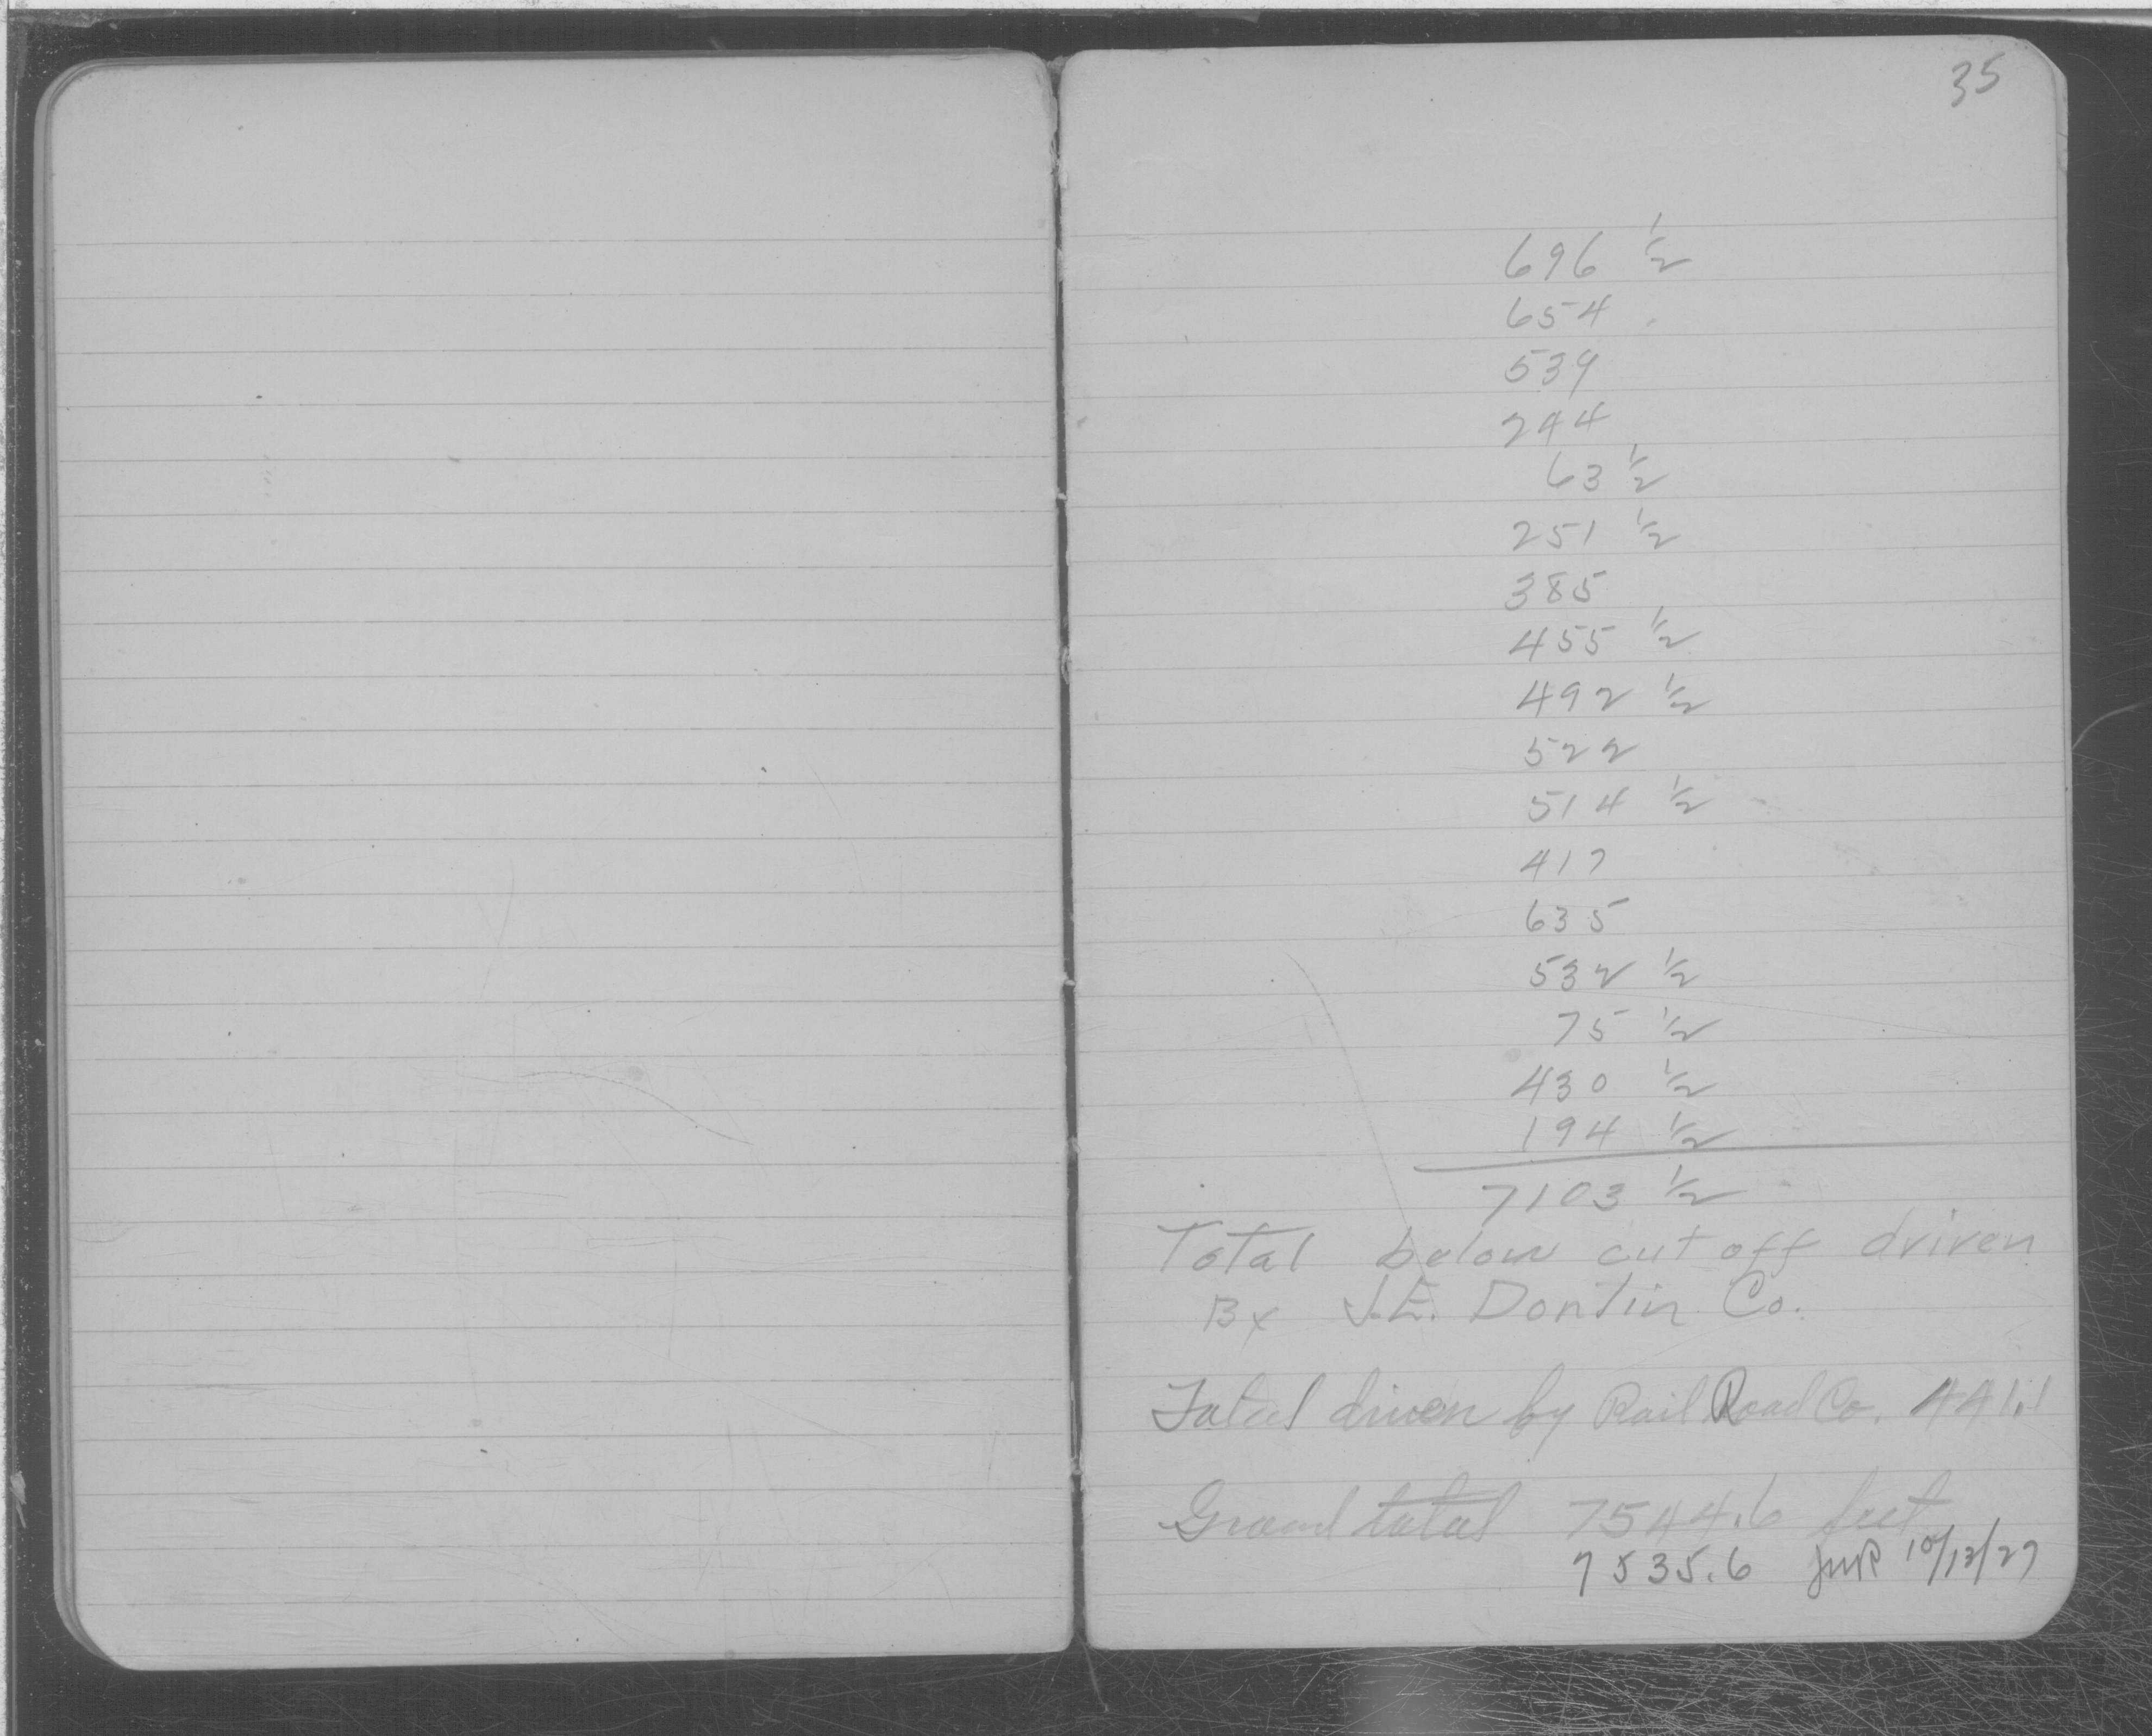 35
696 1/2
654
539
244
63 1/2
251 1/2
385
455 1/2
492 1/2
522
514 1/2
417
635
532 1/2
75 1/2
430 1/2
194 1/2
7103 1/2
Total below cut off driven
By J.E. Donlin Co.
Total driven by Rail Road Co. 441.1
Grand total 7544.6 feet
7535.6 JMR 10/13/27